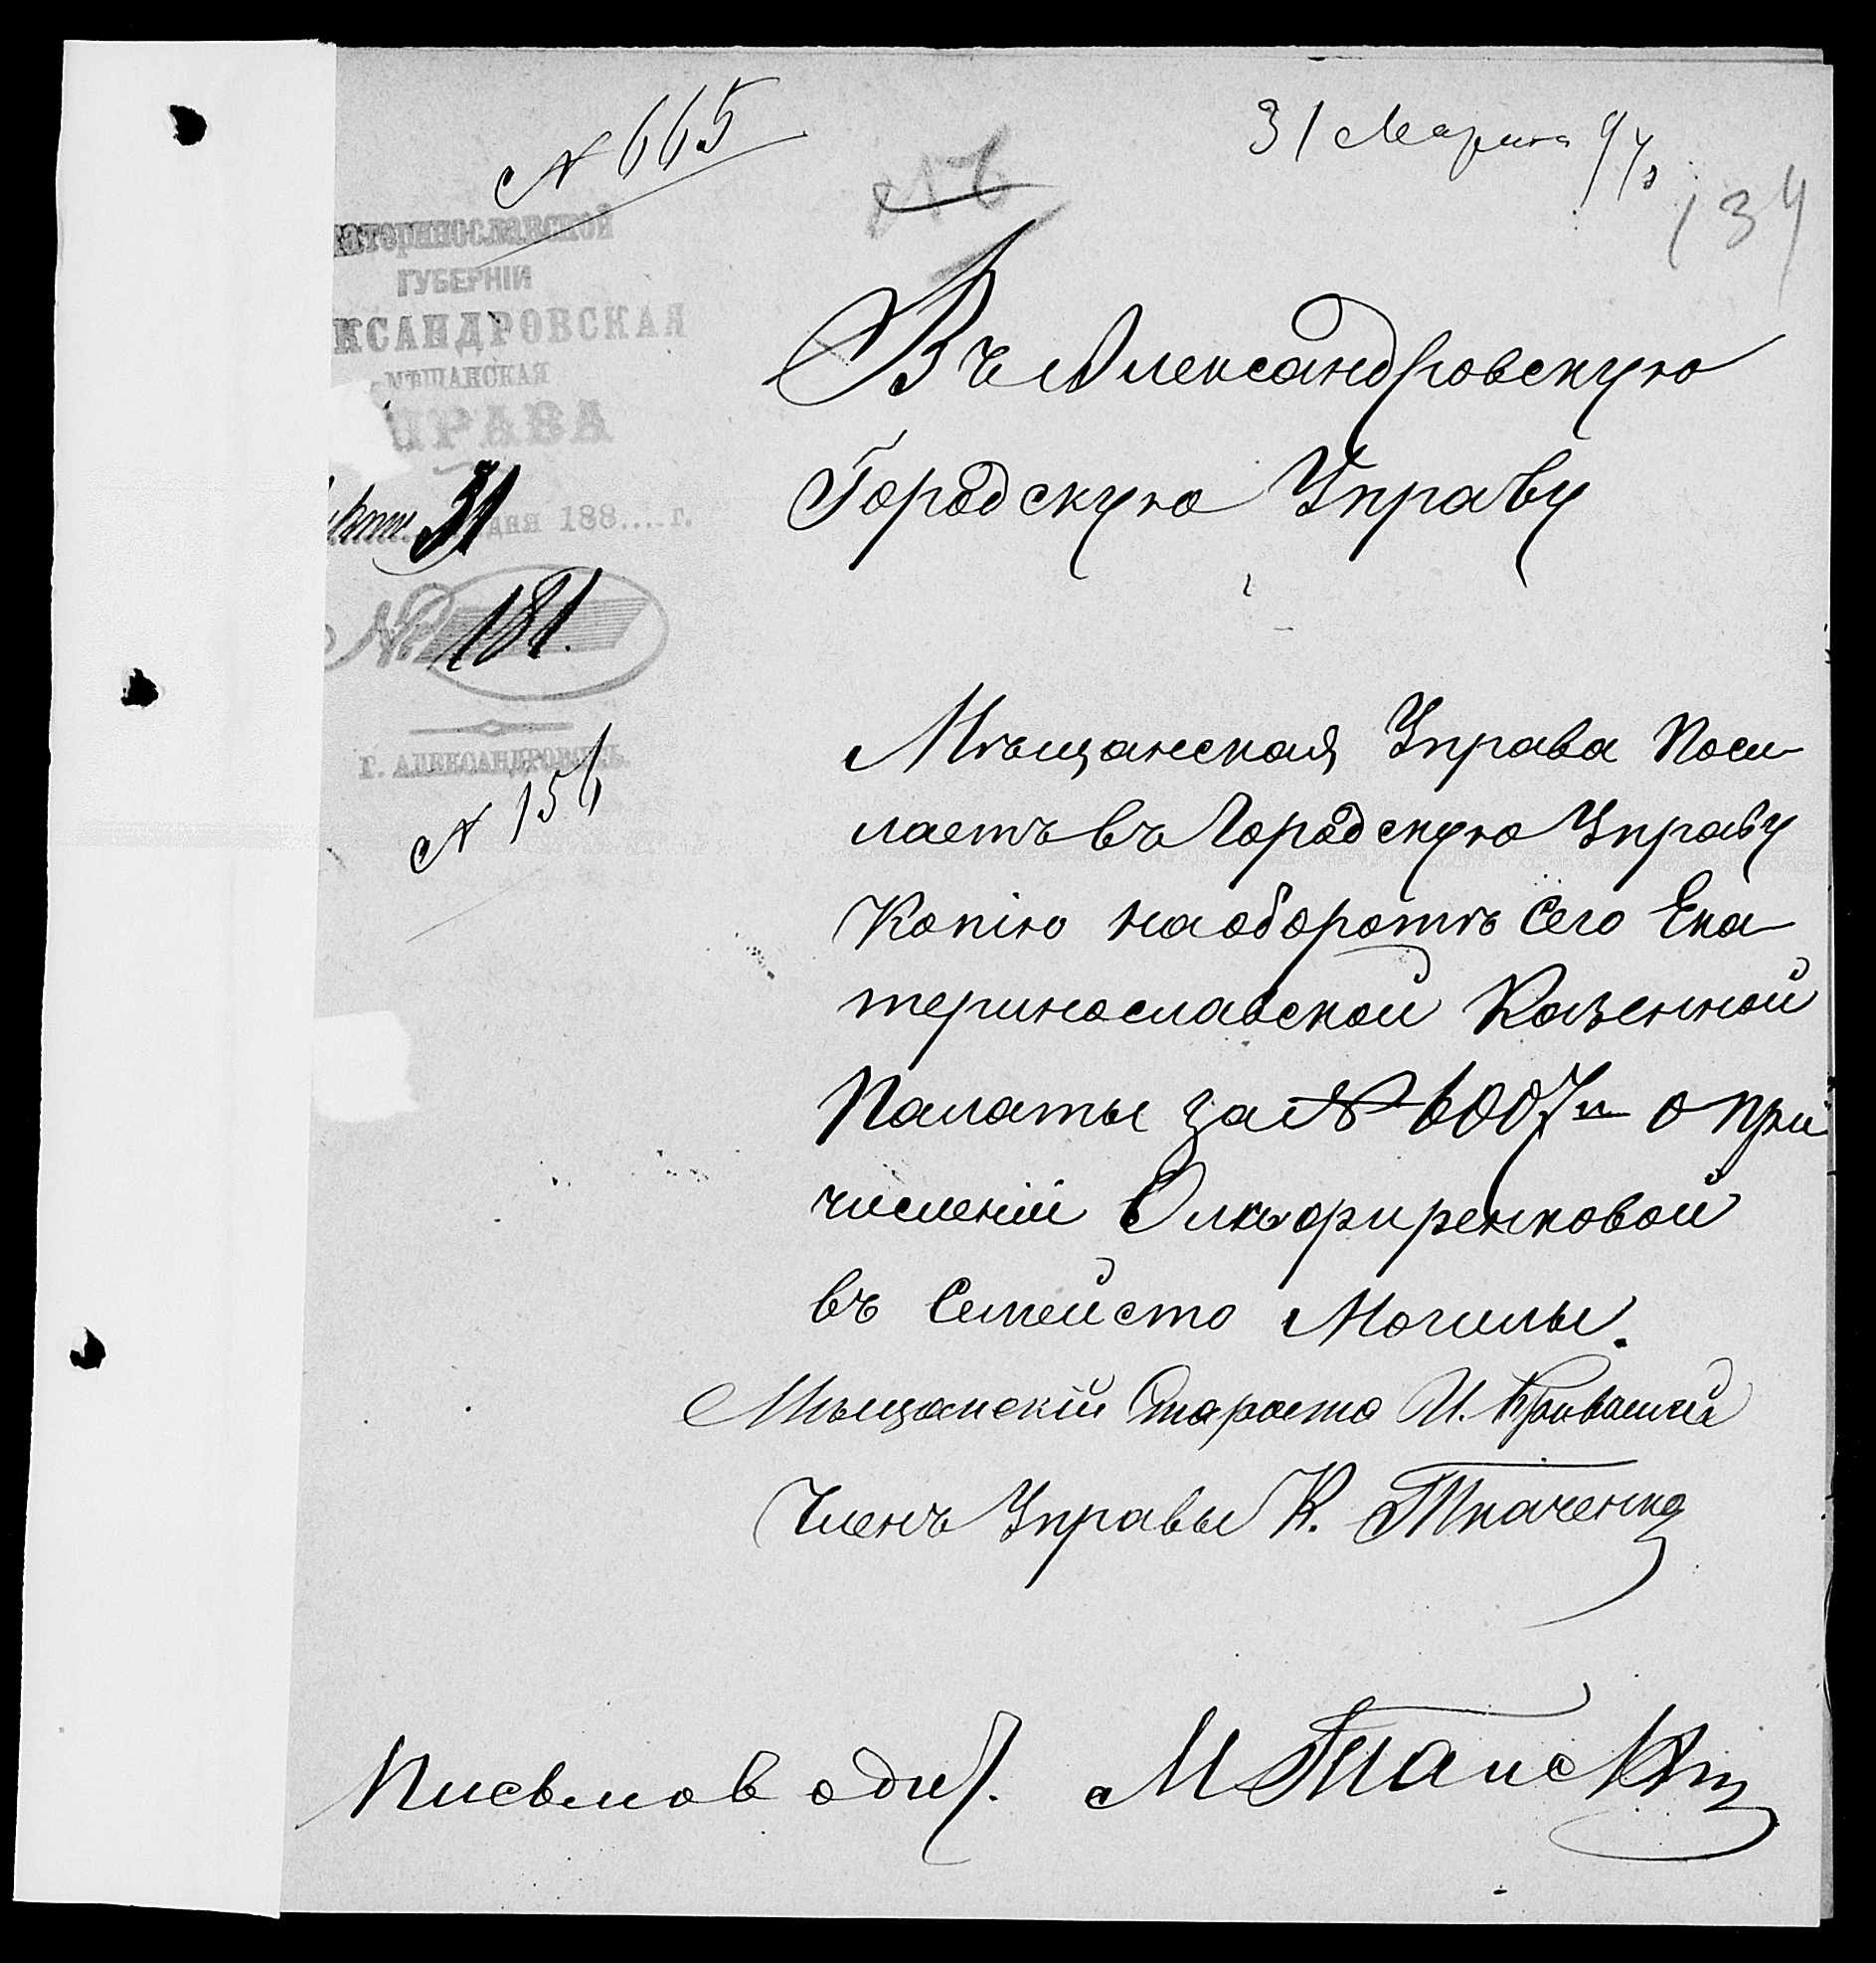 N 665
31 Марта 94
134
N 6
Екатеринославской
ГУБЕРНІИ
АЛЕКСАНДРОВСКАЯ
МѢЩАНСКАЯ
УПРАВА
31 дня 188....г.
№ 181.
Г. АЛЕКСАНДРОВСКЪ.
N 156
Въ Александровскую
Городскую Управу
Мѣщанская Управа Посы-
лаетъ въ Городскую Управу
Копію на оборотѣ Сего Ека-
теринославской Казенной
Палаты за № 6007м о при
численіи
въ Семейсто Могилы.
Мѣщанскій Староста И.
Членъ Управы К. Ткаченко
Письмоводит.